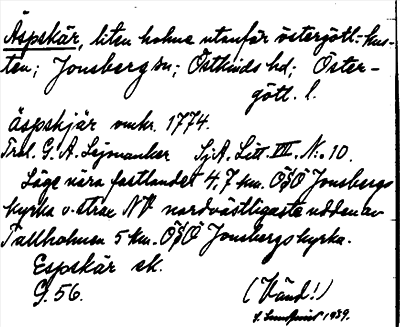 Äspskär, liten holme utanför östergötl.-kus-
ten; Jonsberg sn; Östkinds hd; Öster-
götl. l.
äspskjär omkr. 1774.
G. A. SjA. Litt. III. N:o 10.
Läge nära fastlandet 4,7 km. OSO Jonsbergs
kyrka o. strax NV nordvästligaste udden av
Tallholmen 5 km. OSO Jonsbergs kyrka.
Espskär sk.
G. 56.
(Vänd!)
1939.